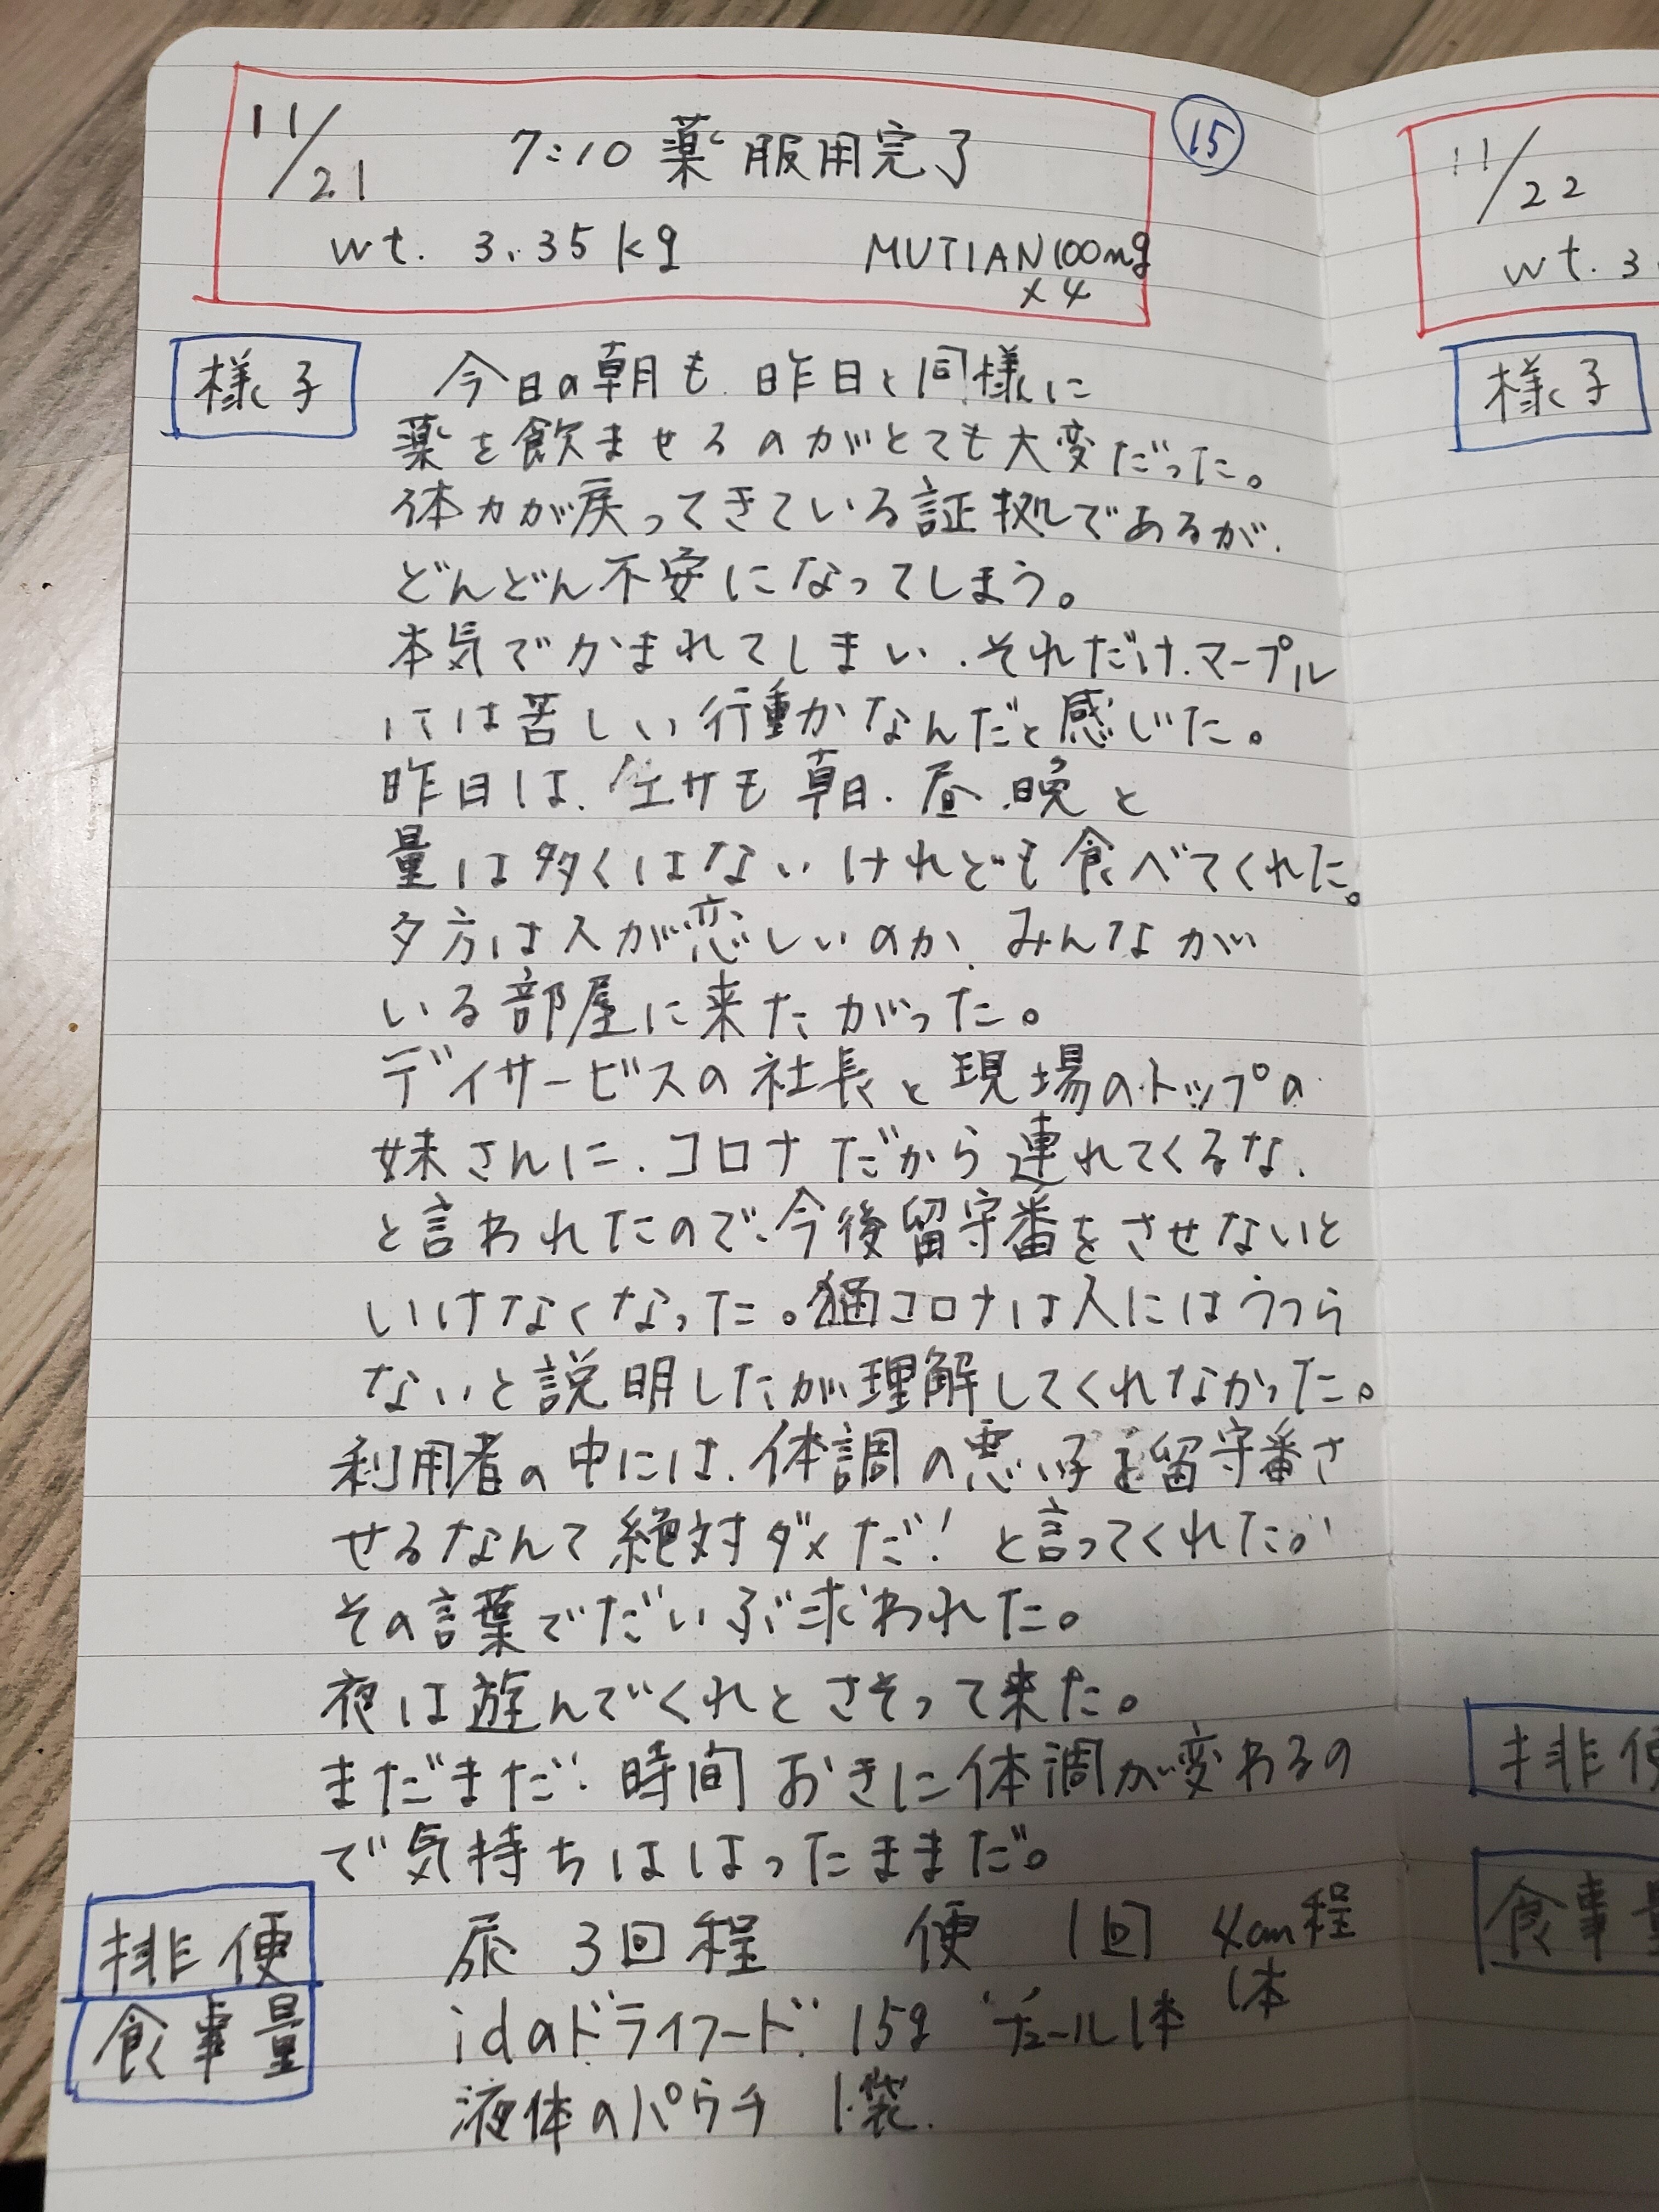 11/21 7:10 薬服用完了 ⑮
wt. 3.35kg MUTIAN100mg
×4
様子
今日の朝も、昨日と同様に
薬を飲ませるのがとても大変だった。
体力が戻ってきている証拠であるが、
どんどん不安になってしまう。
本気でかまれてしまい、それだけ、マープル
には苦しい行動かなんだと感じた。
昨日は、生サも朝、昼、晩と
量は多くはないけれども食べてくれた。
夕方は人が恋しいのか、みんなが
いる部屋に来たがった。
デイサービスの社長と現場のトップの
妹さんに、コロナだから連れてくるな、
と言われたので、今後留守番をさせないと
いけなくなった。猫コロナは人にはうつら
ないと説明したが理解してくれなかった。
利用者の中には、体調の悪い子を留守番さ
せるなんて絶対ダメだ！と言ってくれた。
その言葉でだいぶ求われた。
夜は遊んでくれとさそって来た。
まだまだ、時間おきに体調が変わるの
で気持ちははったままだ。
排便 尿 3回程 便 1回 4cm程
1本
食事量 idのドライフード 15g チュール1本
液体のパウチ 1袋
11/22
wt. 3
様子
排便
食事量